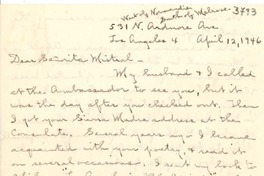 West of Normandie
South of Melrose
3793
531 N. Ardmore Ave
Los Angeles 4 April 12, 1946
Dear Señorita Mistral -
My husband & I called
at the Ambassador to see you, but it
was the day after you checked out. Then
I got your Sierra Madre address at the
Consulate. Several years ago I became
acquainted with your poetry, & read it
on several occasions. I sent my book to